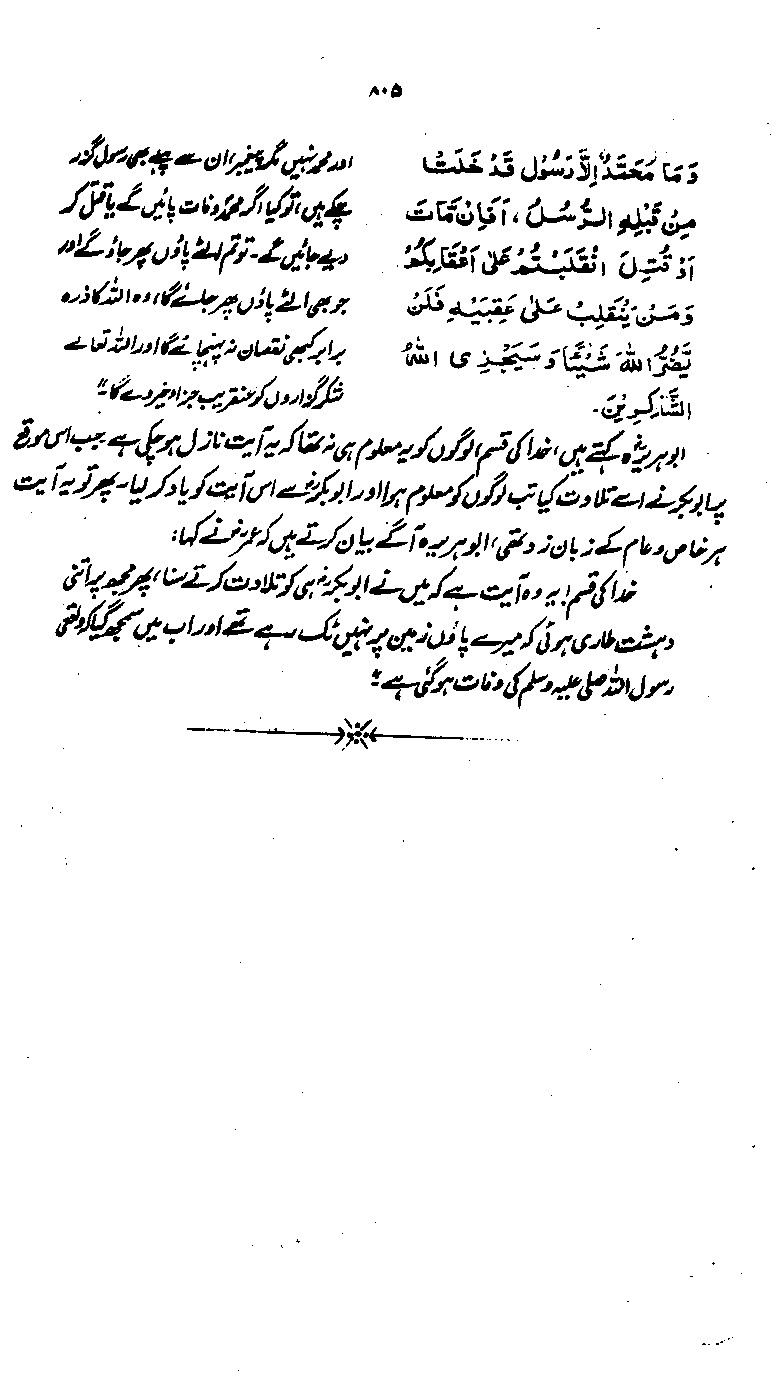 ۸۰۵
وَمَا مُحَمَّدٌ اِلَّا رَسُوْلٌ قَدْ خَلَتْ
مِنْ قَبْلِهِ الرُّسُلُ، اَفَاِنْ مَّاتَ
اَوْ قُتِلَ انْقَلَبْتُمْ عَلٰى اَعْقَابِكُمْ
وَمَنْ يَّنْقَلِبْ عَلٰى عَقِبَيْهِ فَلَنْ
يَّضُرَّ اللهَ شَيْئًا وَسَيَجْزِى اللهُ
الشّٰكِرِيْنَ۔
اور محمد نہیں مگر پیغمبر، ان سے پہلے بھی رسول گذر
چکے ہیں، تو کیا اگر محمدؐ وفات پائیں گے یا قتل کر
دیے جائیں گے۔ تو تم الٹے پاؤں پھر جاؤ گے اور
جو بھی الٹے پاؤں پھر جائے گا، وہ اللہ کا ذرہ
برابر کبھی نقصان نہ پہنچائے گا اور اللہ تعالے
شکر گزاروں کو عنقریب جزاء خیر دے گا۔"
ابو ہریرہؓ کہتے ہیں، خدا کی قسم، لوگوں کو یہ معلوم ہی نہ تھا کہ یہ آیت نازل ہو چکی ہے جب اس موقع
پر ابو بکر نے اسے تلاوت کیا تب لوگوں کو معلوم ہوا اور ابو بکرؓ سے اس آیت کو یاد کر لیا۔ پھر تو یہ آیت
ہر خاص و عام کے زبان زد تھی، ابو ہریرہ آگے بیان کرتے ہیں کہ عمرؓ نے کہا:
خدا کی قسم! یہ وہ آیت ہے کہ میں نے ابو بکرؓ ہی کو تلاوت کرتے سنا، پھر مجھ پر اتنی
دہشت طاری ہوئی کہ میرے پاؤں زمین پر نہیں ٹک رہے تھے اور اب میں سمجھ گیا کہ واقعی
رسول اللہ صلی علیہ وسلم کی وفات ہو گئی ہے۔"